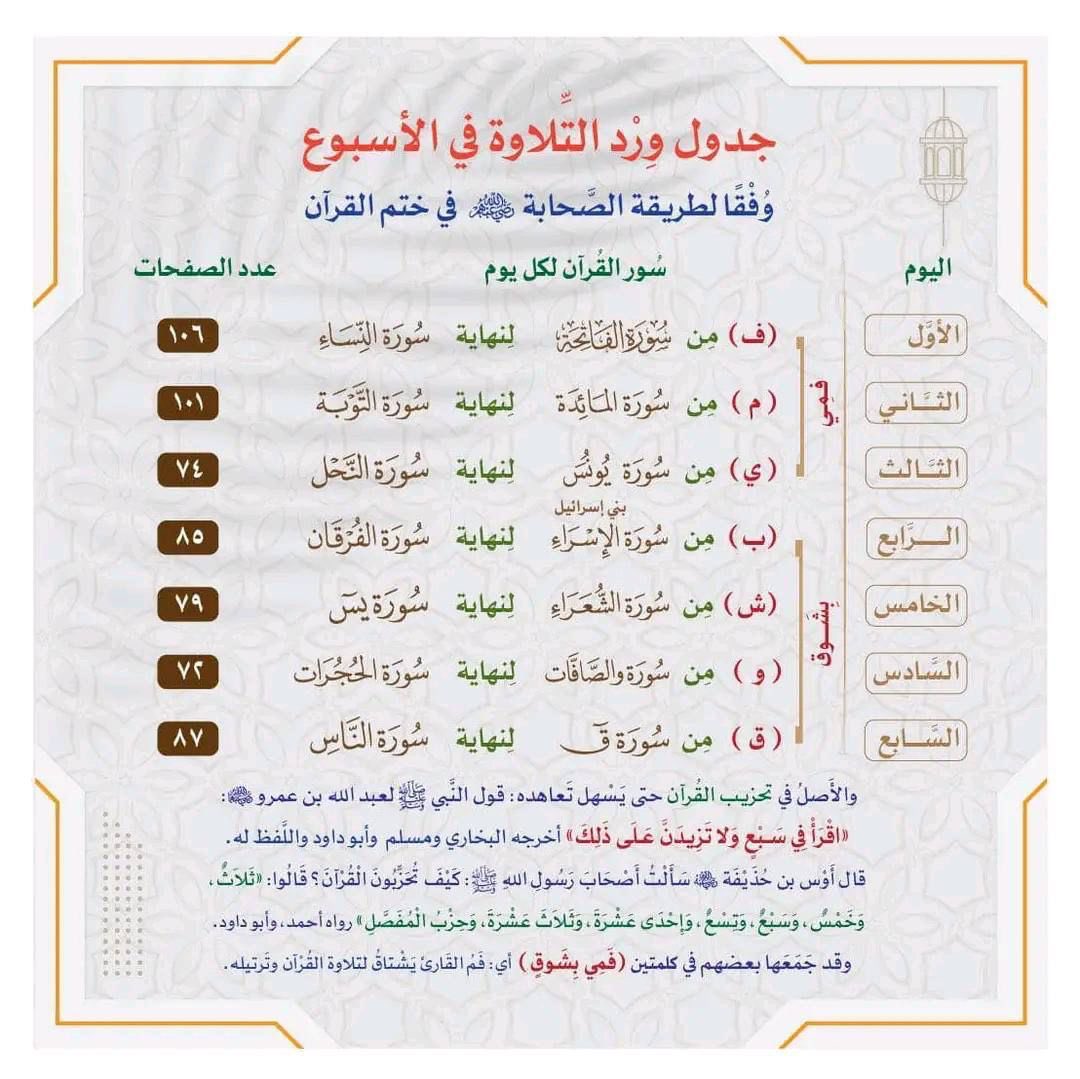 جدول وِرْد التِّلاوة في الأسبوع
وُفْقًا لطريقة الصَّحابة رضي الله عنهم في ختم القرآن
اليوم سُور القُرآن لكل يوم عدد الصفحات
الأوَّل (ف) مِن سُورَةِ الفَاتِحَةِ لِنهاية سُورَة النِّسَاء ١٠٦
الثـَّـاني (م) مِن سُورَة المَائِدَة لِنهاية سُورَة التَّوْبَة ١٠١
فـمِي
الثـَّـالث (ي) مِن سُورَة يُونُس لِنهاية سُورَة النَّحْل ٧٤
بني إسرائيل
الـــرَّابع (ب) مِن سُورَة الإِسْرَاء لِنهاية سُورَة الفُرْقَان ٨٥
الخامس (ش) مِن سُورَة الشُّعَرَاء لِنهاية سُورَة يسٓ ٧٩
بِشَـوق
السَّـادس (و) مِن سُورَة والصَّافَّات لِنهاية سُورَة الحُجُرَات ٧٢
السَّـابع (ق) مِن سُورَة قٓ لِنهاية سُورَة النَّاسِ ٨٧
والأَصلُ في تحزيب القُرآن حتى يَسْهل تَعاهده: قول النَّبي ﷺ لعبد الله بن عمرو رضي الله عنهما:
«اقْرَأْ فِي سَـبْعٍ وَلا تَزِيدَنَّ عَلَى ذَلِكَ» أخرجه البخاري ومسلم وأبو داود واللَّفظ له.
قال أَوْس بن حُذَيْفَة رضي الله عنه سَأَلْتُ أَصْحَابَ رَسُولِ اللهِ ﷺ: كَيْفَ تُحَزِّبُونَ الْقُرْآنَ؟ قَالُوا: «ثَلَاثٌ،
وَخَمْسٌ، وَسَبْعٌ، وَتِسْعٌ، وَإِحْدَى عَشْرَةَ، وَثَلَاثَ عَشْرَةَ، وَحِزْبُ الْمُفَصَّلِ» رواه أحمد، وأبو داود.
وقد جَمَعَها بعضهم في كلمتين (فَمي بِشَوقٍ) أي: فَمُ القارئ يَشْتاقُ لتلاوة القُرْآن وتَرتيله.